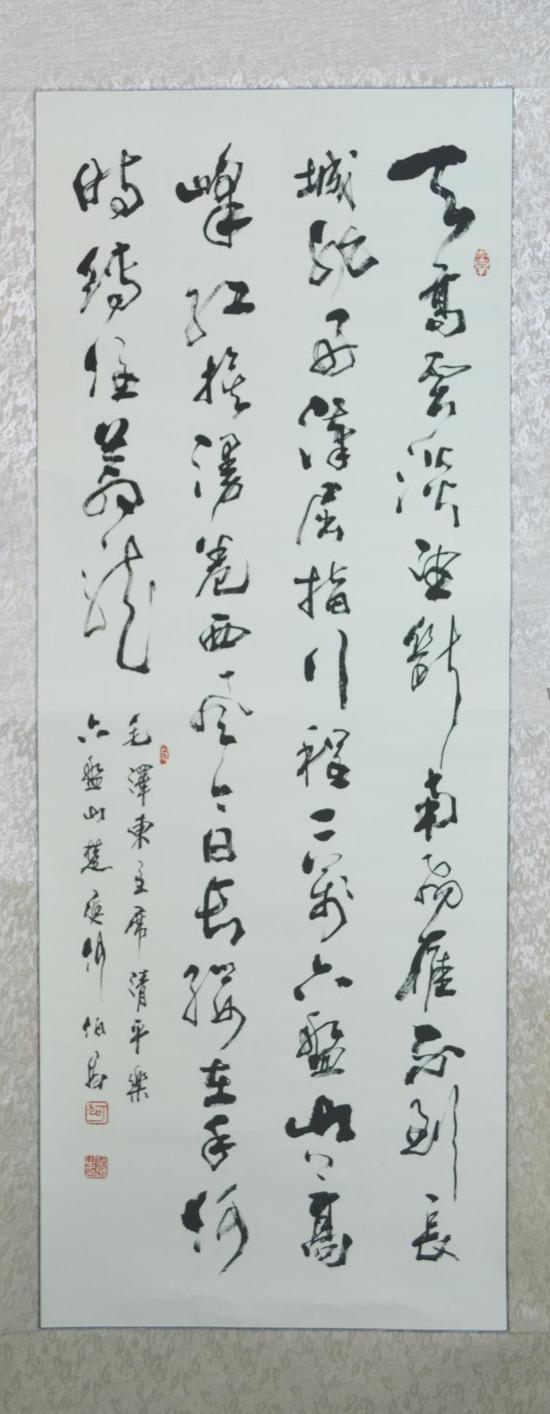 天高雲淡望斷南飛雁不到長
城非好漢屈指行程二萬六盤山上高
峰紅旗漫卷西風今日長纓在手何
時縛住蒼龍
毛澤東主席清平樂
六盤山楚庭何伯